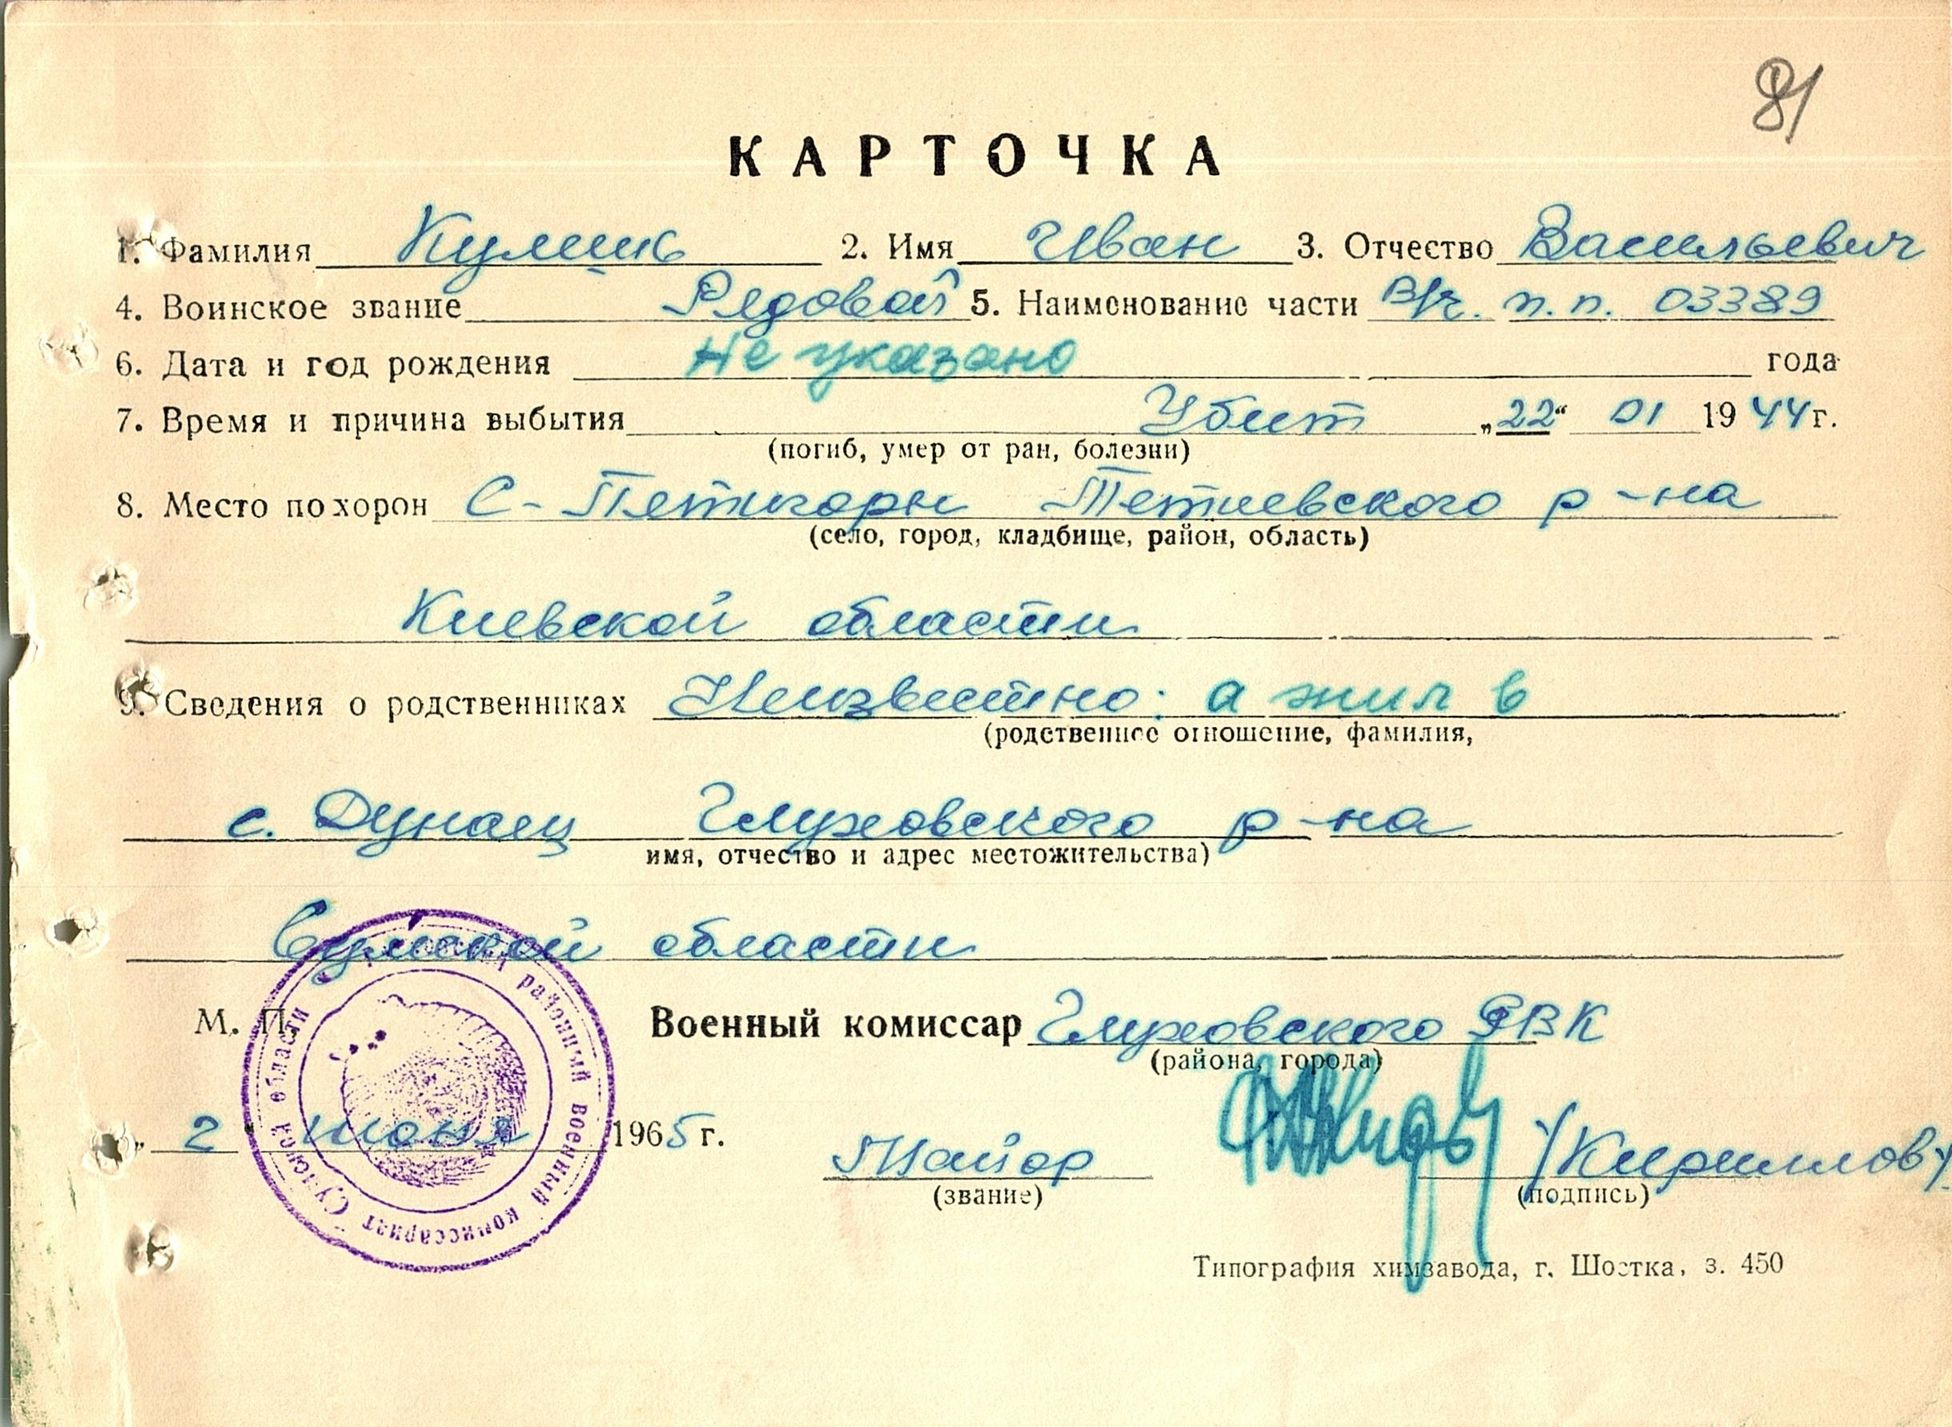 81
КАРТОЧКА
1. Фамилия Кулешь 2. Имя Иван 3. Отчество Васильевич
4. Воинское звание Рядовой 5. Наименование части В/ч. п.п. 03389
6. Дата и год рождения Не указано года
7. Время и причина выбытия Убит „22“ 01 1944 г.
(погиб, умер от ран, болезни)
8. Место похорон С- Пятигоры Тетиевского р-на
(село, город, кладбище, район, область)
Киевской области
9. Сведения о родственниках Неизвестно: а жил в
(родственное отношение, фамилия,
с. Дунаец Глуховского р-на
имя, отчество и адрес местожительства)
Сумской области
М. П. Военный комиссар Глуховского РВК
(района, города)
„ 2 июня 1965 г. Майор /Кириллов/
(звание) (подпись)
районный военный комиссариат Сумской области
Типография химзавода, г. Шостка, з. 450